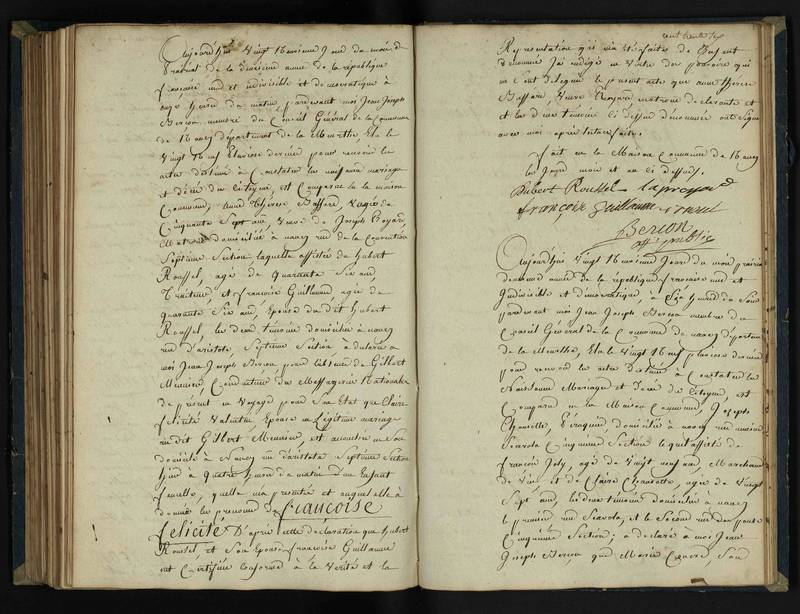 Aujourd'hui Vingt 16 uniesme Jour du mois de
Prairial de la deuxieme année de la république
francaise une et indivisible et democratique à
onze heures du matin pardevant moi Jean Joseph
Berson membre du Conseil Général de la Commune
de Nancy département de la Meurthe, Elu le
Vingt 16 pour recevoir les
actes destinés à Constater les naissances mariages
et décès des Citoyens, est Comparue en la maison
Commune, Anne Thérèse Bassard, agée de
Cinquante Sept ans Veuve de Joseph Boyard
Matrone domiciliée à nancy rue de la Convention
Septieme Section, laquelle assistée de hubert
Roussel, agé de Quarante Six ans
Traiteur, et francoise Guillaume agée de
quarante Six ans, épouse du dit hubert
Roussel, les deux témoins domiciliés à nancy
rue d'aristote, Septieme Section à déclaré à
moi Jean Joseph Berson pour l'absence de Gilbert
Meunier, Conducteur des Messageries Nationales
de présent en Voyage pour Son Etat que Claire
félicité Valentin Epouse en Légitime mariage
du dit Gilbert Meunier, est accouchée en Son
domicile à Nancy rue d'aristote Septieme Section
hier à quatre heures du matin d'un Enfant
femelle, qu'elle m'a presenté et auquel elle à
donné les prenoms de françoise
felicité D'après cette déclaration que hubert
Roussel, et Son Epouse francoise Guillaume
ont Certifiée Conforme à la Vérité et la
cent trente six
Representation qui m'a été faite de l'enfant
denommé J'ai redigé en Vertu des pouvoirs qui
me Sont delegués le present acte que anne thérèse
Bassard, Veuve Boyard matrone declarante et
et les deux temoins Ci dessus denommés ont Signé
avec moi après lecture faite.
fait en la Maison Commune de Nancy
les Jour mois et an Ci dessus.
Hubert Roussel
françoise Guillaume
Berson
off. public
Aujourd'hui Vingt 16 uniesme Jour du mois prairial
deuxieme année de la république francaise une et
Indivisible et démocratique, à Six heures du Soir
pardevant moi Jean Joseph Berson membre du
Conseil Général de la Commune de nancy département
de la Meurthe, Elu le Vingt 16
pour recevoir les actes Destinés à Constater les
Naissances Mariages et Décès des Citoyens, est
Comparu en la Maison Commune, Joseph
domicilié à nancy rue
Scævola Cinquieme Section lequel assisté de
francois Joly, agé de Vingt neuf ans, Marchand
de Vin et de Claire agée de Vingt
Sept ans, les deux temoins domiciliés à nancy
le premier rue Scævola, et le Second rue des ponts
Cinquieme Section; a déclaré à moi Jean
Joseph Berson, que Marie Son